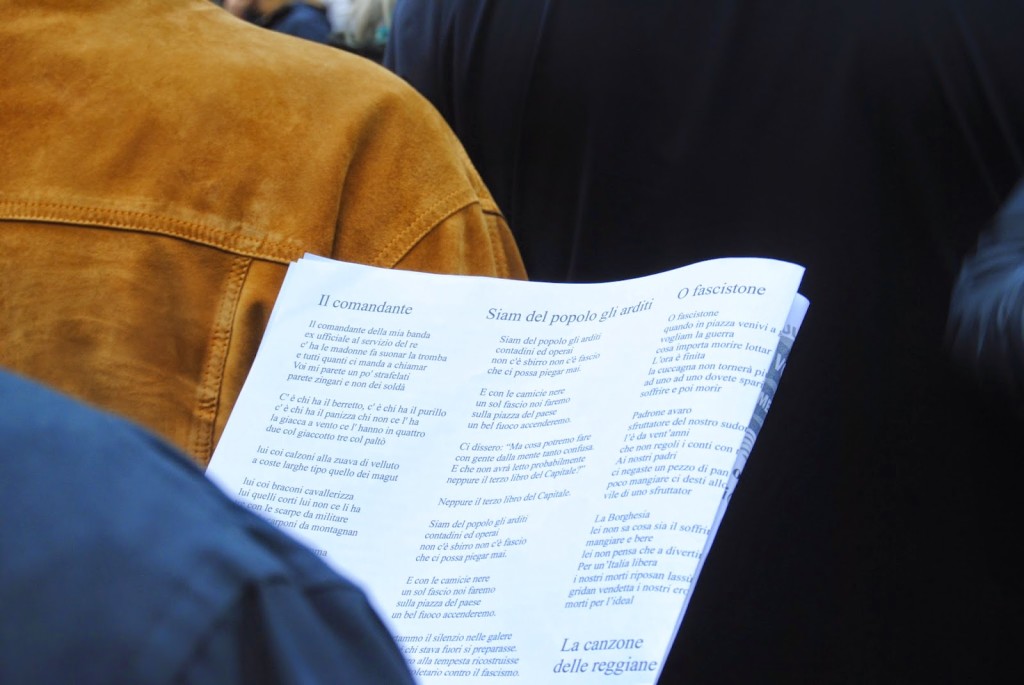 Il comandante
Il comandante della mia banda
ex ufficiale al servizio del re
c' ha le madonne fa suonar la tromba
e tutti quanti ci manda a chiamar
Voi mi parete un po' strafelati
parete zingari e non dei soldà
C' è chi ha il berretto, c' è chi ha il purillo
c' è chi ha il panizza chi non ce l' ha
la giacca a vento ce l' hanno in quattro
due col giaccotto tre col paltò
lui coi calzoni alla zuava di velluto
a coste larghe tipo quello dei magut
lui coi braconi cavallerizza
lui quelli corti lui non ce li ha
con le scarpe da militare
scarponi da montagnan
Siam del popolo gli arditi
Siam del popolo gli arditi
contadini ed operai
non c'è sbirro non c'è fascio
che ci possa piegar mai.
E con le camicie nere
un sol fascio noi faremo
sulla piazza del paese
un bel fuoco accenderemo.
Ci dissero: "Ma cosa potremo fare
con gente dalla mente tanto confusa.
E che non avrà letto probabilmente
neppure il terzo libro del Capitale?"
Neppure il terzo libro del Capitale.
Siam del popolo gli arditi
contadini ed operai
non c'è sbirro non c'è fascio
che ci possa piegar mai.
E con le camicie nere
un sol fascio noi faremo
sulla piazza del paese
un bel fuoco accenderemo.
il silenzio nelle galere
chi stava fuori si preparasse.
alla tempesta ricostruisse
contro il fascismo.
O fascistone
O fascistone
quando in piazza venivi a
vogliam la guerra
cosa importa morire lottar
L'ora è finita
la cuccagna non tornerà
ad uno ad uno dovete
soffrire e poi morir
Padrone avaro
sfruttatore del nostro
l'è da vent'anni
che non regoli i conti
Ai nostri padri
ci negaste un pezzo di pan
poco mangiare ci desti
vile di uno sfruttator
La Borghesia
lei non sa cosa sia il
mangiare e bere
lei non pensa che a
Per un'Italia libera
i nostri morti riposan
gridan vendetta i nostri
morti per l'ideal
La canzone
delle reggiane